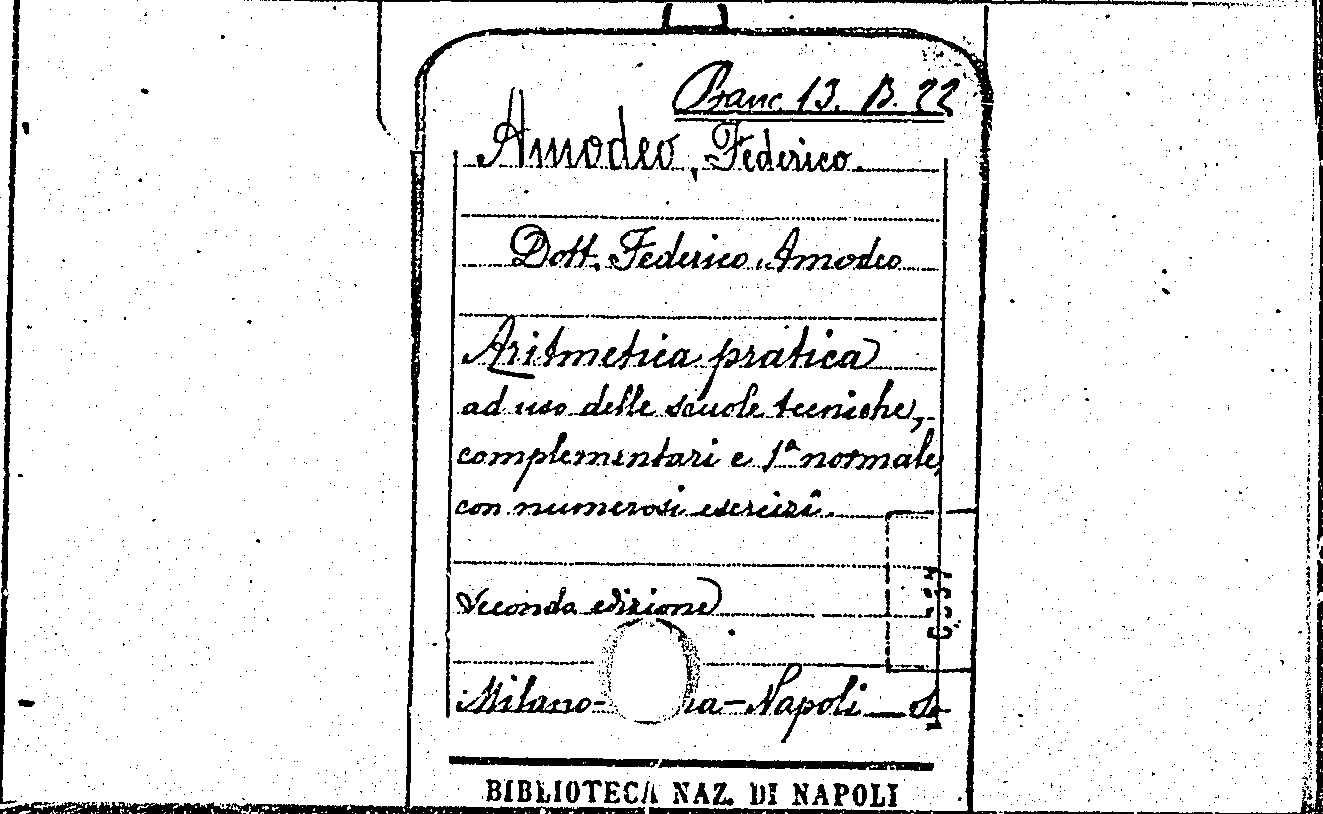 Branc. 13. B. 22
Amodeo, Federico.
Dott. Federico Amodeo
Aritmetica pratica
ad uso delle scuole tecniche,
complementari e 1ª normale,
con numerosi esercizî.
Seconda edizione
Milano- na-Napoli
BIBLIOTECA NAZ. DI NAPOLI